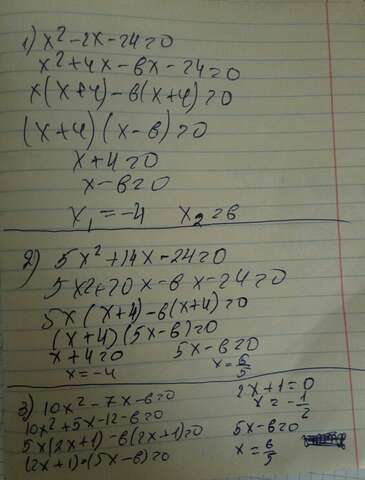 1) x² - 2x - 24 = 0
x² + 4x - 6x - 24 = 0
x(x+4) - 6(x+4) = 0
(x+4)(x-6) = 0
x+4=0
x-6=0
x₁ = -4 x₂ = 6
2) 5x² + 14x - 24 = 0
5x2 + 20x - 6x - 24 = 0
5x(x+4) - 6(x+4) = 0
(x+4)(5x-6) = 0
x+4=0 5x-6=0
x=-4 x=6/5
3) 10x² - 7x - 6 = 0
10x² + 5x - 12 - 6 = 0
5x(2x+1) - 6(2x+1) = 0
(2x+1)·(5x-6) = 0
2x+1=0
x=-1/2
5x-6=0
x=6/5